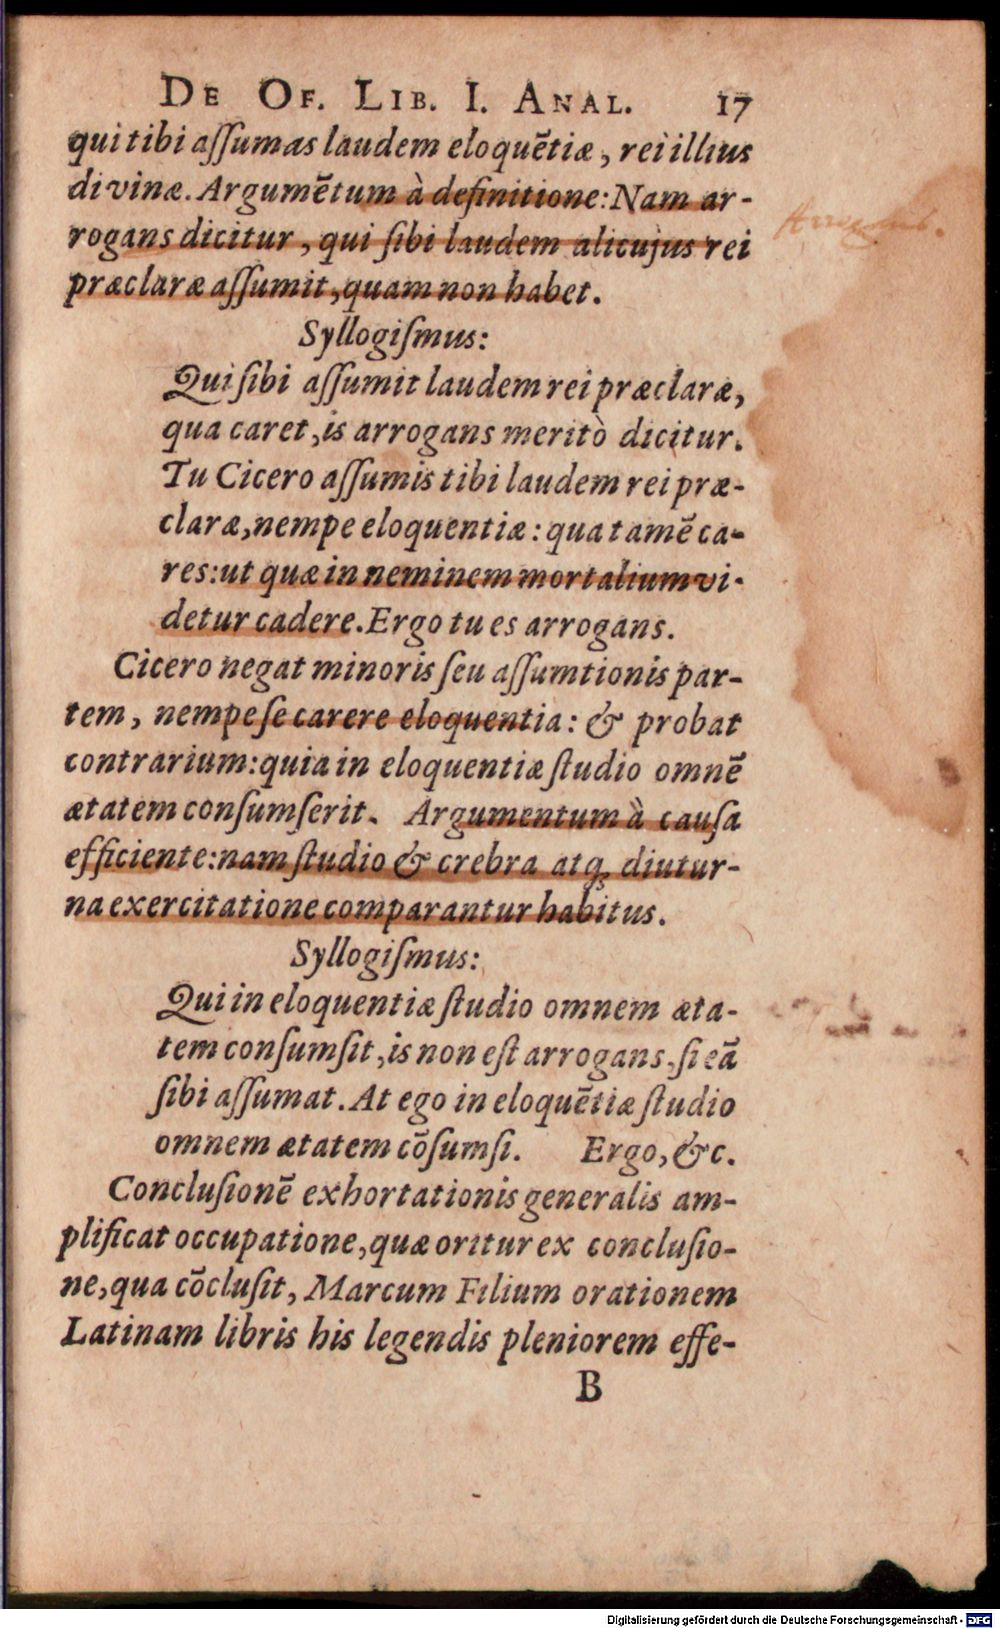 DE OF. LIB. I. ANAL. 17
qui tibi aſſumas laudem eloquẽtiæ, rei illius
divinæ. Argumẽtum à definitione: Nam ar-
rogans dicitur, qui ſibi laudem alicujus rei
præclaræ aſſumit, quam non habet.
Syllogiſmus:
Qui ſibi aſſumit laudem rei præclaræ,
qua caret, is arrogans meritò dicitur.
Tu Cicero aſſumis tibi laudem rei præ-
claræ, nempe eloquentiæ: qua tamẽ ca-
res: ut quæ in neminem mortalium vi-
detur cadere. Ergo tu es arrogans.
Cicero negat minoris ſeu aſſumtionis par-
tem, nempe ſe carere eloquentia: & probat
contrarium: quia in eloquentiæ ſtudio omnẽ
ætatem conſumſerit. Argumentum à cauſa
efficiente: nam ſtudio & crebra atq; diutur-
na exercitatione comparantur habitus.
Syllogiſmus:
Qui in eloquentiæ ſtudio omnem æta-
tem conſumſit, is non eſt arrogans, ſi eã
ſibi aſſumat. At ego in eloquẽtiæ ſtudio
omnem ætatem cõſumſi. Ergo, &c.
Concluſionẽ exhortationis generalis am-
plificat occupatione, quæ oritur ex concluſio-
ne, qua cõcluſit, Marcum Filium orationem
Latinam libris his legendis pleniorem effe-
B
Digitalisierung gefördert durch die Deutsche Forschungsgemeinschaft - DFG